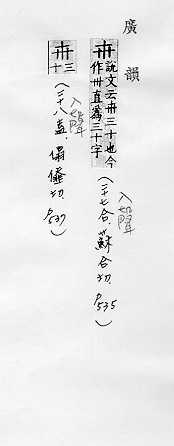 廣韻
卅 說文云卅三十也今
作卅直為三十字
(二十七合,蘇合切,P535)
入聲
卅 三十
(二十八盍,私盍切,P537)
入聲